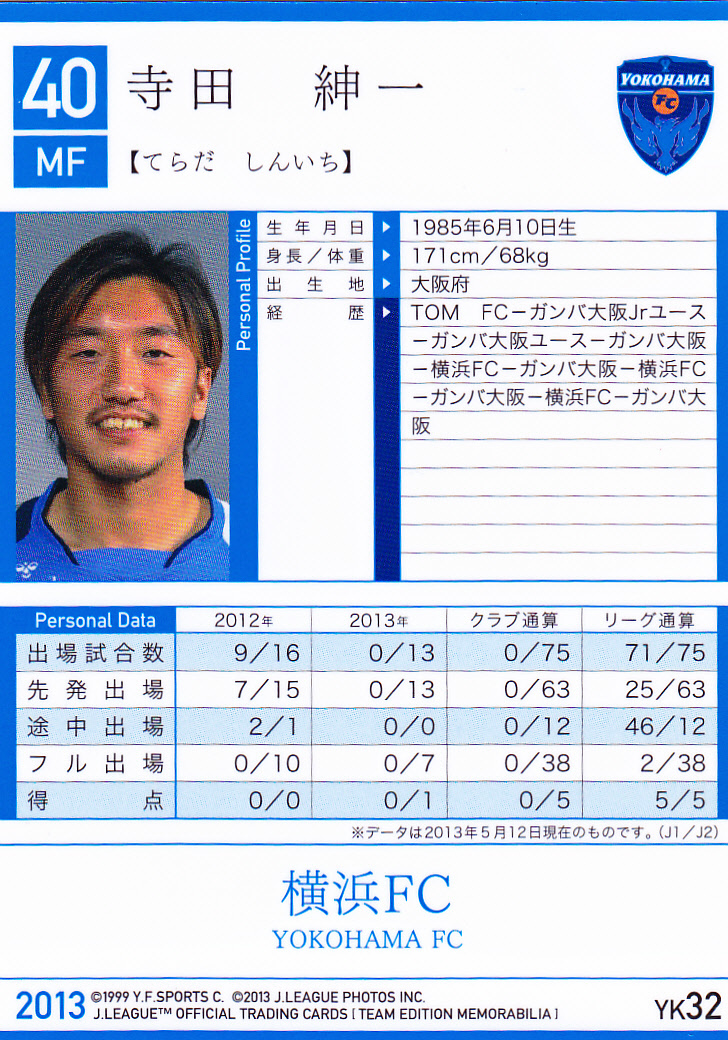 40
寺田 紳一
MF
【てらだ しんいち】
YOKOHAMA
FC
Personal Profile
生年月日 1985年6月10日生
身長／体重 171cm／68kg
出生地 大阪府
経歴 TOM FC－ガンバ大阪Jrユース
－ガンバ大阪ユース－ガンバ大阪
－横浜FC－ガンバ大阪－横浜FC
－ガンバ大阪－横浜FC－ガンバ大
阪
Personal Data 2012年 2013年 クラブ通算 リーグ通算
出場試合数 9／16 0／13 0／75 71／75
先発出場 7／15 0／13 0／63 25／63
途中出場 2／1 0／0 0／12 46／12
フル出場 0／10 0／7 0／38 2／38
得点 0／0 0／1 0／5 5／5
※データは2013年5月12日現在のものです。（J1／J2）
横浜FC
YOKOHAMA FC
2013 ©1999 Y.F.SPORTS C. ©2013 J.LEAGUE PHOTOS INC.
J.LEAGUE™ OFFICIAL TRADING CARDS [ TEAM EDITION MEMORABILIA ]
YK32